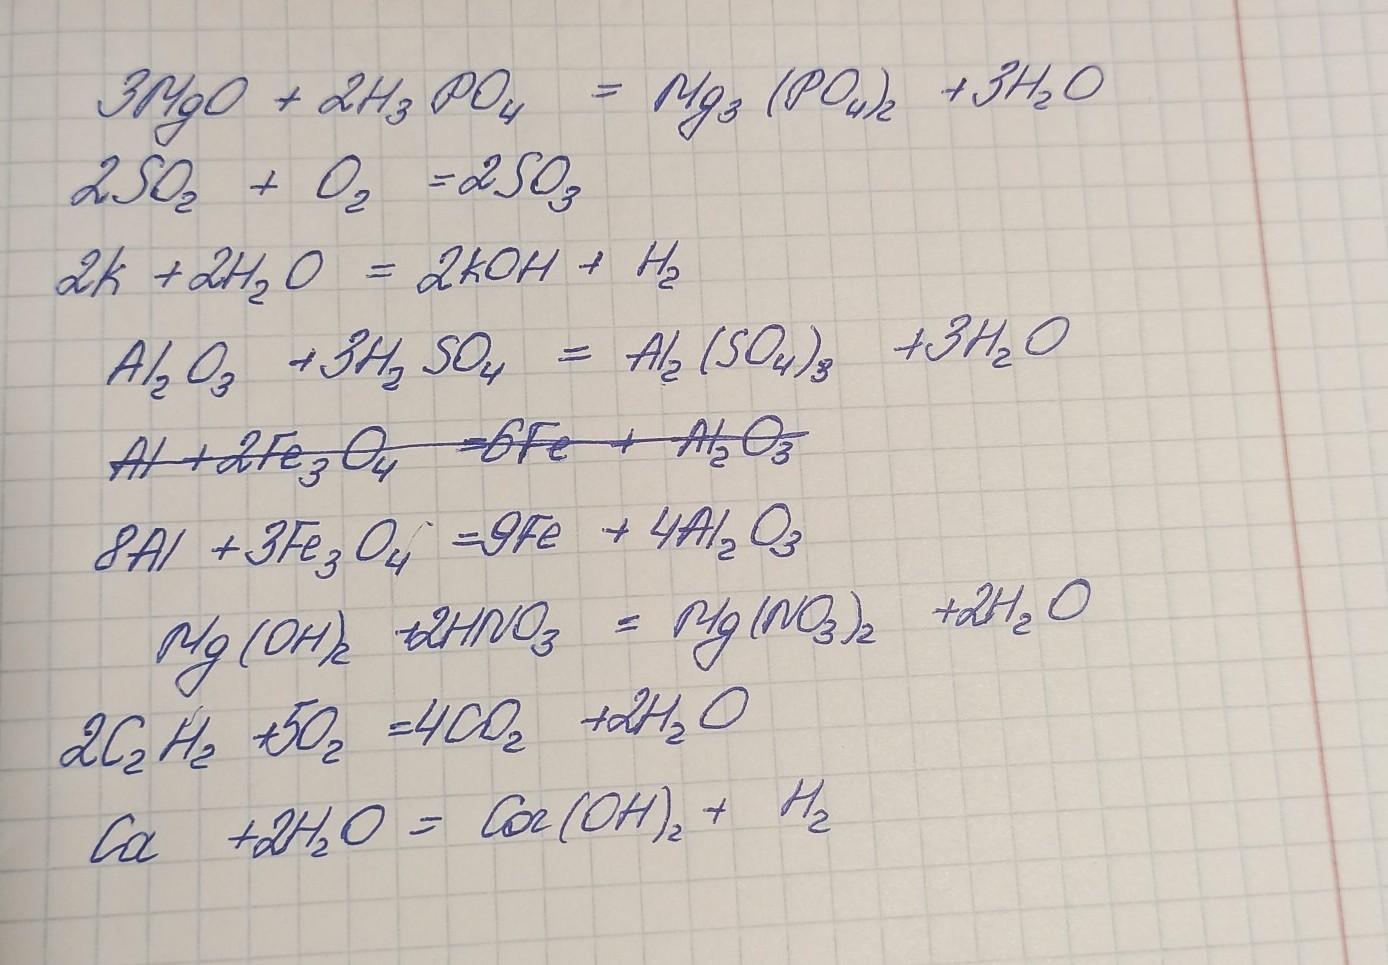 3MgO + 2H₃PO₄ = Mg₃(PO₄)₂ + 3H₂O
2SO₂ + O₂ = 2SO₃
2K + 2H₂O = 2KOH + H₂
Al₂O₃ + 3H₂SO₄ = Al₂(SO₄)₃ + 3H₂O
~~Al + 2Fe₃O₄ = 6Fe + Al₂O₃~~
8Al + 3Fe₃O₄ = 9Fe + 4Al₂O₃
Mg(OH)₂ + 2HNO₃ = Mg(NO₃)₂ + 2H₂O
2C₂H₂ + 5O₂ = 4CO₂ + 2H₂O
Ca + 2H₂O = Ca(OH)₂ + H₂